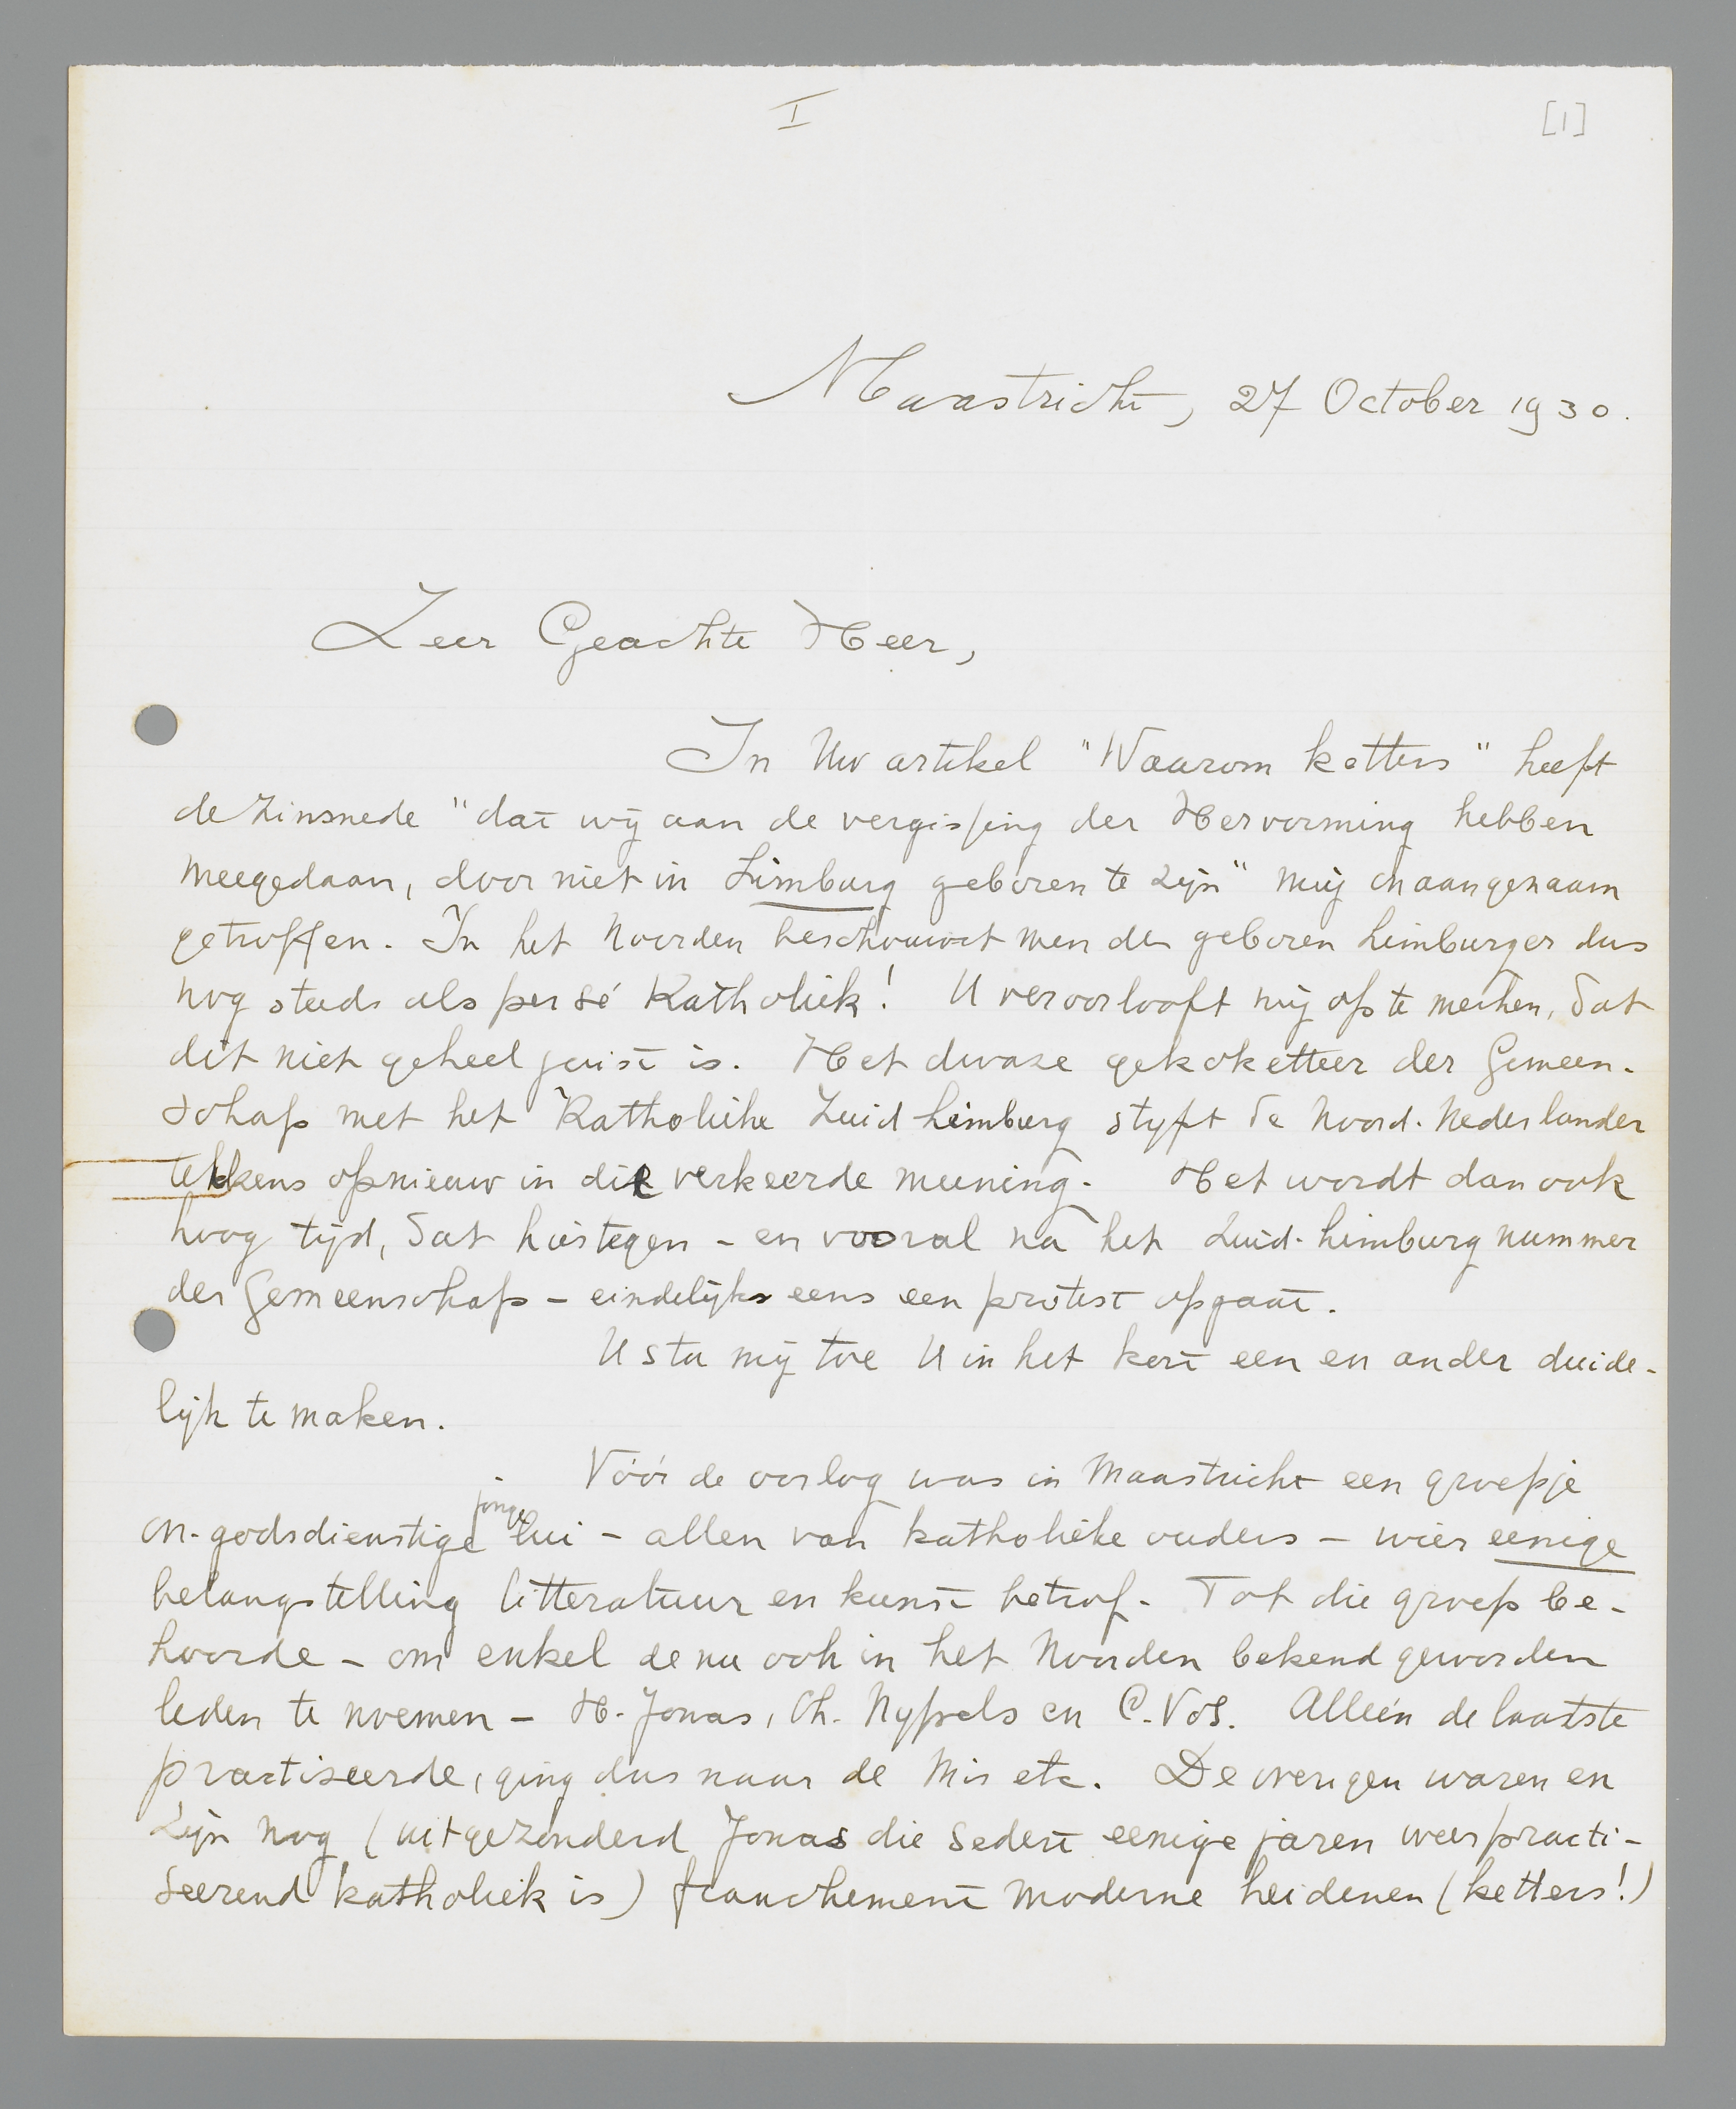 I
[1]
Maastricht, 27 October 1930.
Zeer Geachte Heer,
In Uw artikel "Waarom ketters" heeft
de zinsnede "dat wij aan de vergissing der Hervorming hebben
meegedaan, door niet in Limburg geboren te zijn" mij onaangenaam
getroffen. In het Noorden beschouwt men den geboren Limburger dus
nog steeds als per sé Katholiek! U veroorlooft mij op te merken, dat
dit niet geheel juist is. Het dwaze gekoketteer der Gemeen-
schap met het Katholieke Zuid Limburg styft de Noord-Nederlander
telkens opnieuw in die verkeerde meening. Het wordt dan ook
hoog tijd, dat hiertegen - en vooral na het Zuid-Limburg nummer
der Gemeenschap - eindelijk eens een protest opgaat.
U sta mij toe U in het kort een en ander duide-
lijk te maken.
Vóór de oorlog was in Maastricht een groepje
on-godsdienstige jonge lui - allen van katholieke ouders - wier eenige
belangstelling litteratuur en kunst betrof. Tot die groep be-
hoorde - om enkel de nu ook in het Noorden bekend geworden
leden te noemen - H. Jonas, Ch. Nypels en C. Vos. Alleén de laatste
practiseerde, ging dus naar de Mis etc. De overigen waren en
zijn nog (uitgezonderd Jonas die sedert eenige jaren weer practi-
seerend katholiek is) franchement moderne heidenen (ketters!)